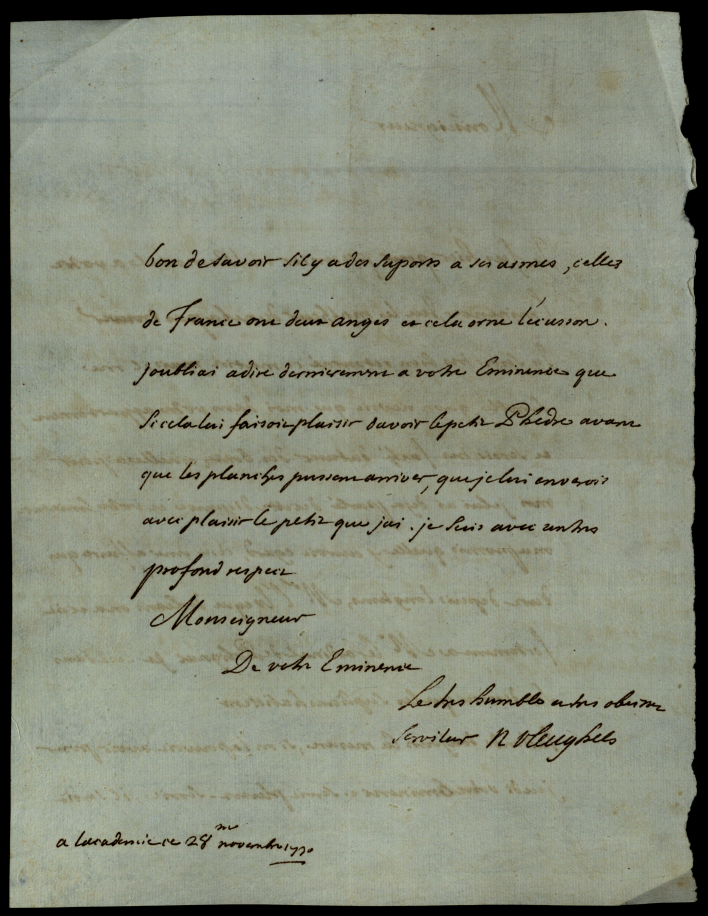 bon de savoir sil y a des suports a ses armes, celles
de France ont deux anges et cela orne l'ecusson.
joubliai a dire dernierement a votre Eminence que
si cela lui faisoit plaisir davoir le petit Phedre avant
que les planches pussent arriver, que je lui enverois
avec plaisir le petit que jai. je suis avec un tres
profond respect
Monseigneur
De votre Eminence
Le tres humble et tres obeissant
serviteur N vleughels
a lacademie ce 28me novembre 1730